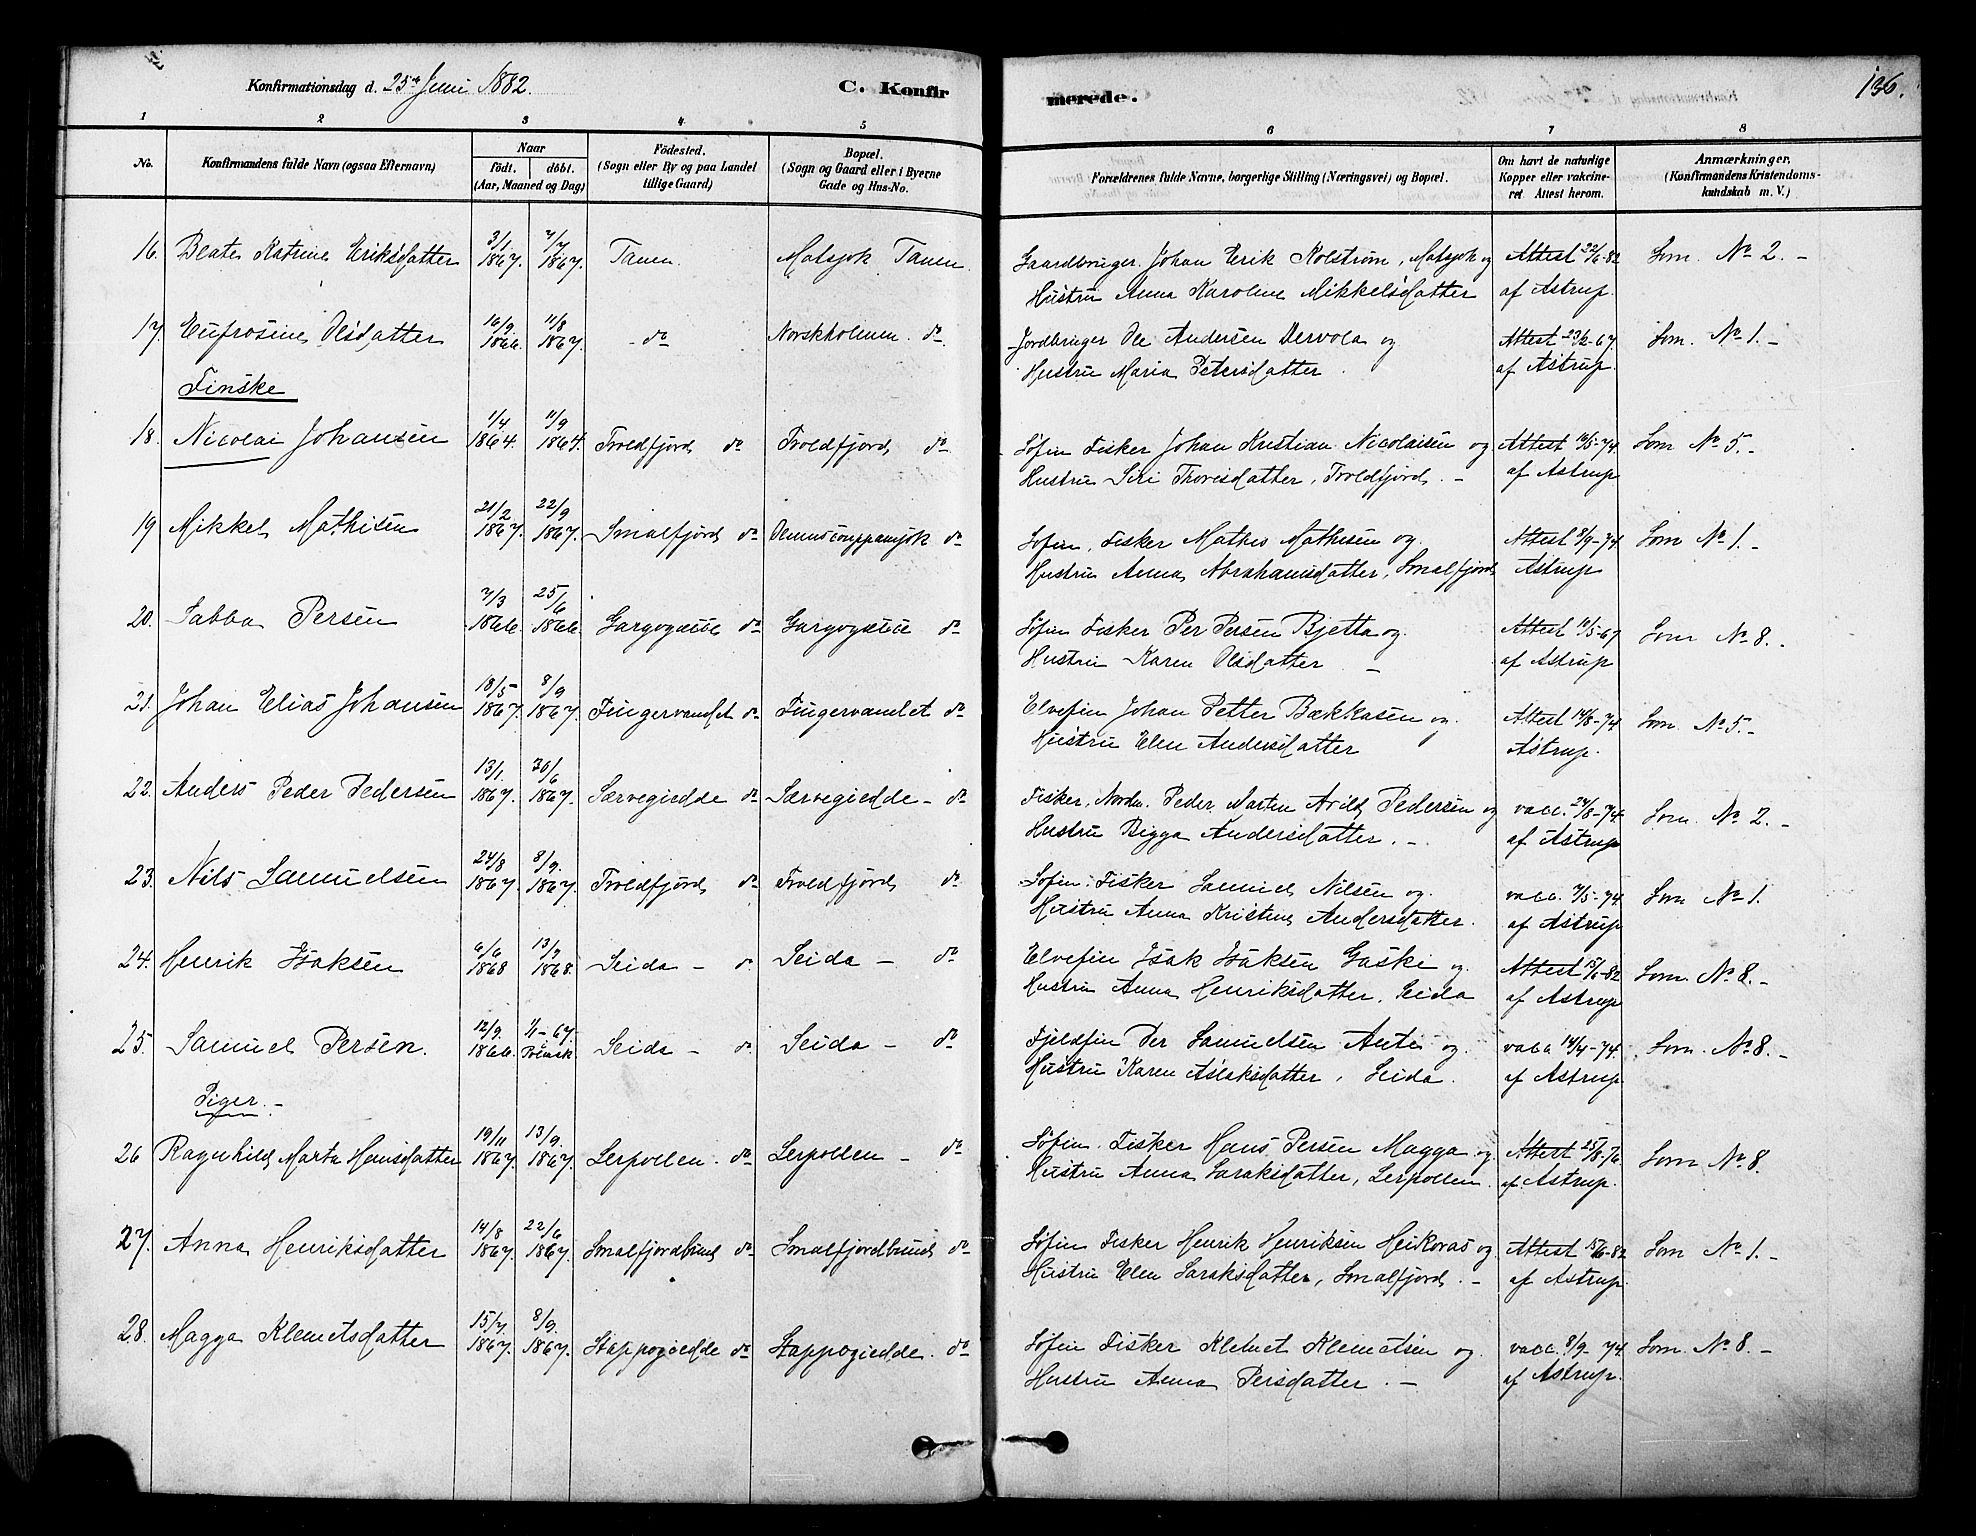 Konfirmationsdag d. 25de Juni 1882.
C. Konfirmerede.
136.
1 2 3 4 5 6 7 8
No. Konfirmandens fulde Navn (ogsaa Efternavn) Naar födt. döbt. (Aar, Maaned og Dag) Födested. (Sogn eller By og paa Landet tillige Gaard) Bopæl. (Sogn og Gaard eller i Byerne Gade og Hus-No. Forældrenes fulde Navne, borgerlige Stilling (Næringsvei) og Bopæl. Om havt de naturlige Kopper eller vakcineret Attest herom. Anmærkninger. (Konfirmandens Kristendomskundskab m. V.)
16. Beate Katrine Eriksdatter 3/1 1867. 7/7 1867. Tanen. Matsjok Tanen. Gaardbruger Johan Erik Kolstrøm, Matsjok og Attest 22/6-82 Som No 2. -
Hustru Anna Karoline Mikkelsdatter af Astrup.
17. Eufrosine Olsdatter 16/9 1866. 11/8 1867. - do Norskholmen. do. Jordbruger Ole Andersen Dervola og Attest 23/2-67. Som No 1. -
Hustru Maria Petersdatter. af Astrup.
Finske
18. Nicolai Johansen 1/4 1864. 11/9 1864. Troldfjord do Troldfjord do Søfin Fisker Johan Kristian Nicolaisen og Attest 16/5-74. Som No 5. -
Hustru Siri Thorisdatter, Troldfjord. - af Astrup
19 Mikkel Mathisen 21/2 1867. 22/9 1867. Smalfjord do do Søfin, Fisker Mathis Mathisen og Attest 8/9-74. Som No 1. -
Hustru Anna Abrahamsdatter, Smalfjord Astrup
20. Sabba Persen 7/3 1866. 25/6 1866. Gargogæcce do Gargogæcce do Søfin Fisker Per Persen Bjetta og Attest 16/5-67 Som No 8. -
Hustru Karen Olsdatter - af Astrup
21. Johan Elias Johansen 18/5 1867. 8/9 1867. Fingervandet do Fingervandet do Elvefin Johan Petter Bækkasen og Attest 14/8-74 Som No 5. -
Hustru Elen Andersdatter Astrup.
22. Anders Peder Pedersen 13/1 1867. 30/6 1867. Særvegiedde do Særvegiedde - do Fisker, Nordm. Peder Marten Arild Pedersen og vacc. 24/8-74. Som No 2. -
Hustru Bigga Andersdatter. - af Astrup
23. Nils Samuelsen 24/8 1867. 8/9. 1867. Troldfjord do Troldfjord do Søfin, Fisker Samuel Nilsen og vacc. 7/5-74. Som No 1.
Hustru Anna Kristine Andersdatter. af Astrup
24. Henrik Isaksen 6/6 1868 13/9 1868. Seida - do Seida - do Elvefin Isak Isaksen Gaski og Attest 15/6-82 Som No 8. -
Hustru Anna Henriksdatter, Seida af Astrup
25. Samuel Persen. 12/9. 1866. 1/1-67. Seida - do Seida - do Fjeldfin Per Samuelsen Anti og vacc. 14/4-74. Som No 8. -
Hustru Karen Aslaksdatter, Seida. af Astrup.
Piger. -
26 Ragnhild Marta Hansdatter 19/11 1867. 13/9. 1867. Lerpollen. do Lerpollen - do Søfin. Fisker Hans Persen Magga og Attest 25/8-76. Som No 8.
Hustru Anna Saraksdatter, Lerpollen. af Astrup.
27. Anna Henriksdatter 14/8 1867. 22/6 1867. Smalfjordbund do Smalfjordbund do Søfin Fisker Henrik Henriksen Heikovas og Attest 15/6-82 Som No 1. -
Hustru Elen Saraksdatter, Smalfjord. - af Astrup.
28. Magga Klemetsdatter 15/7 1867. 8/9. 1867. Stappogiedde do Stappogiedde. do Søfin Fisker Klemet Klemetsen og vacc. 8/9 74. Som No 8. -
Hustru Anna Persdatter. - af Astrup.